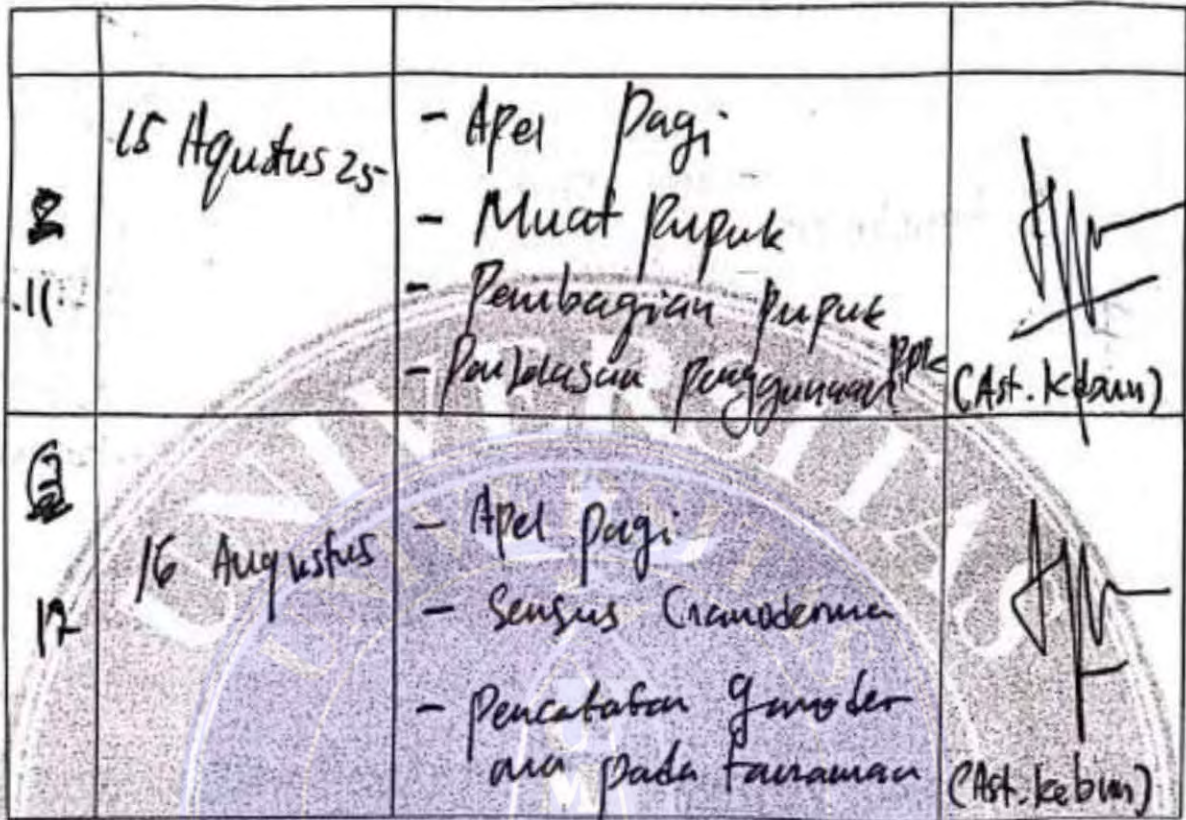 15 Agustus 25
- Apel Pagi
- Muat pupuk
11
- Pembagian pupuk
- Penjelasan penggunaan ppk
(Ast. Kebun)
UNIVERSITAS
16 Augustus
- Apel pagi
12
- Sensus Ganoderma
- Pencatatan Ganoder
ma pada tanaman
(Ast. kebun)